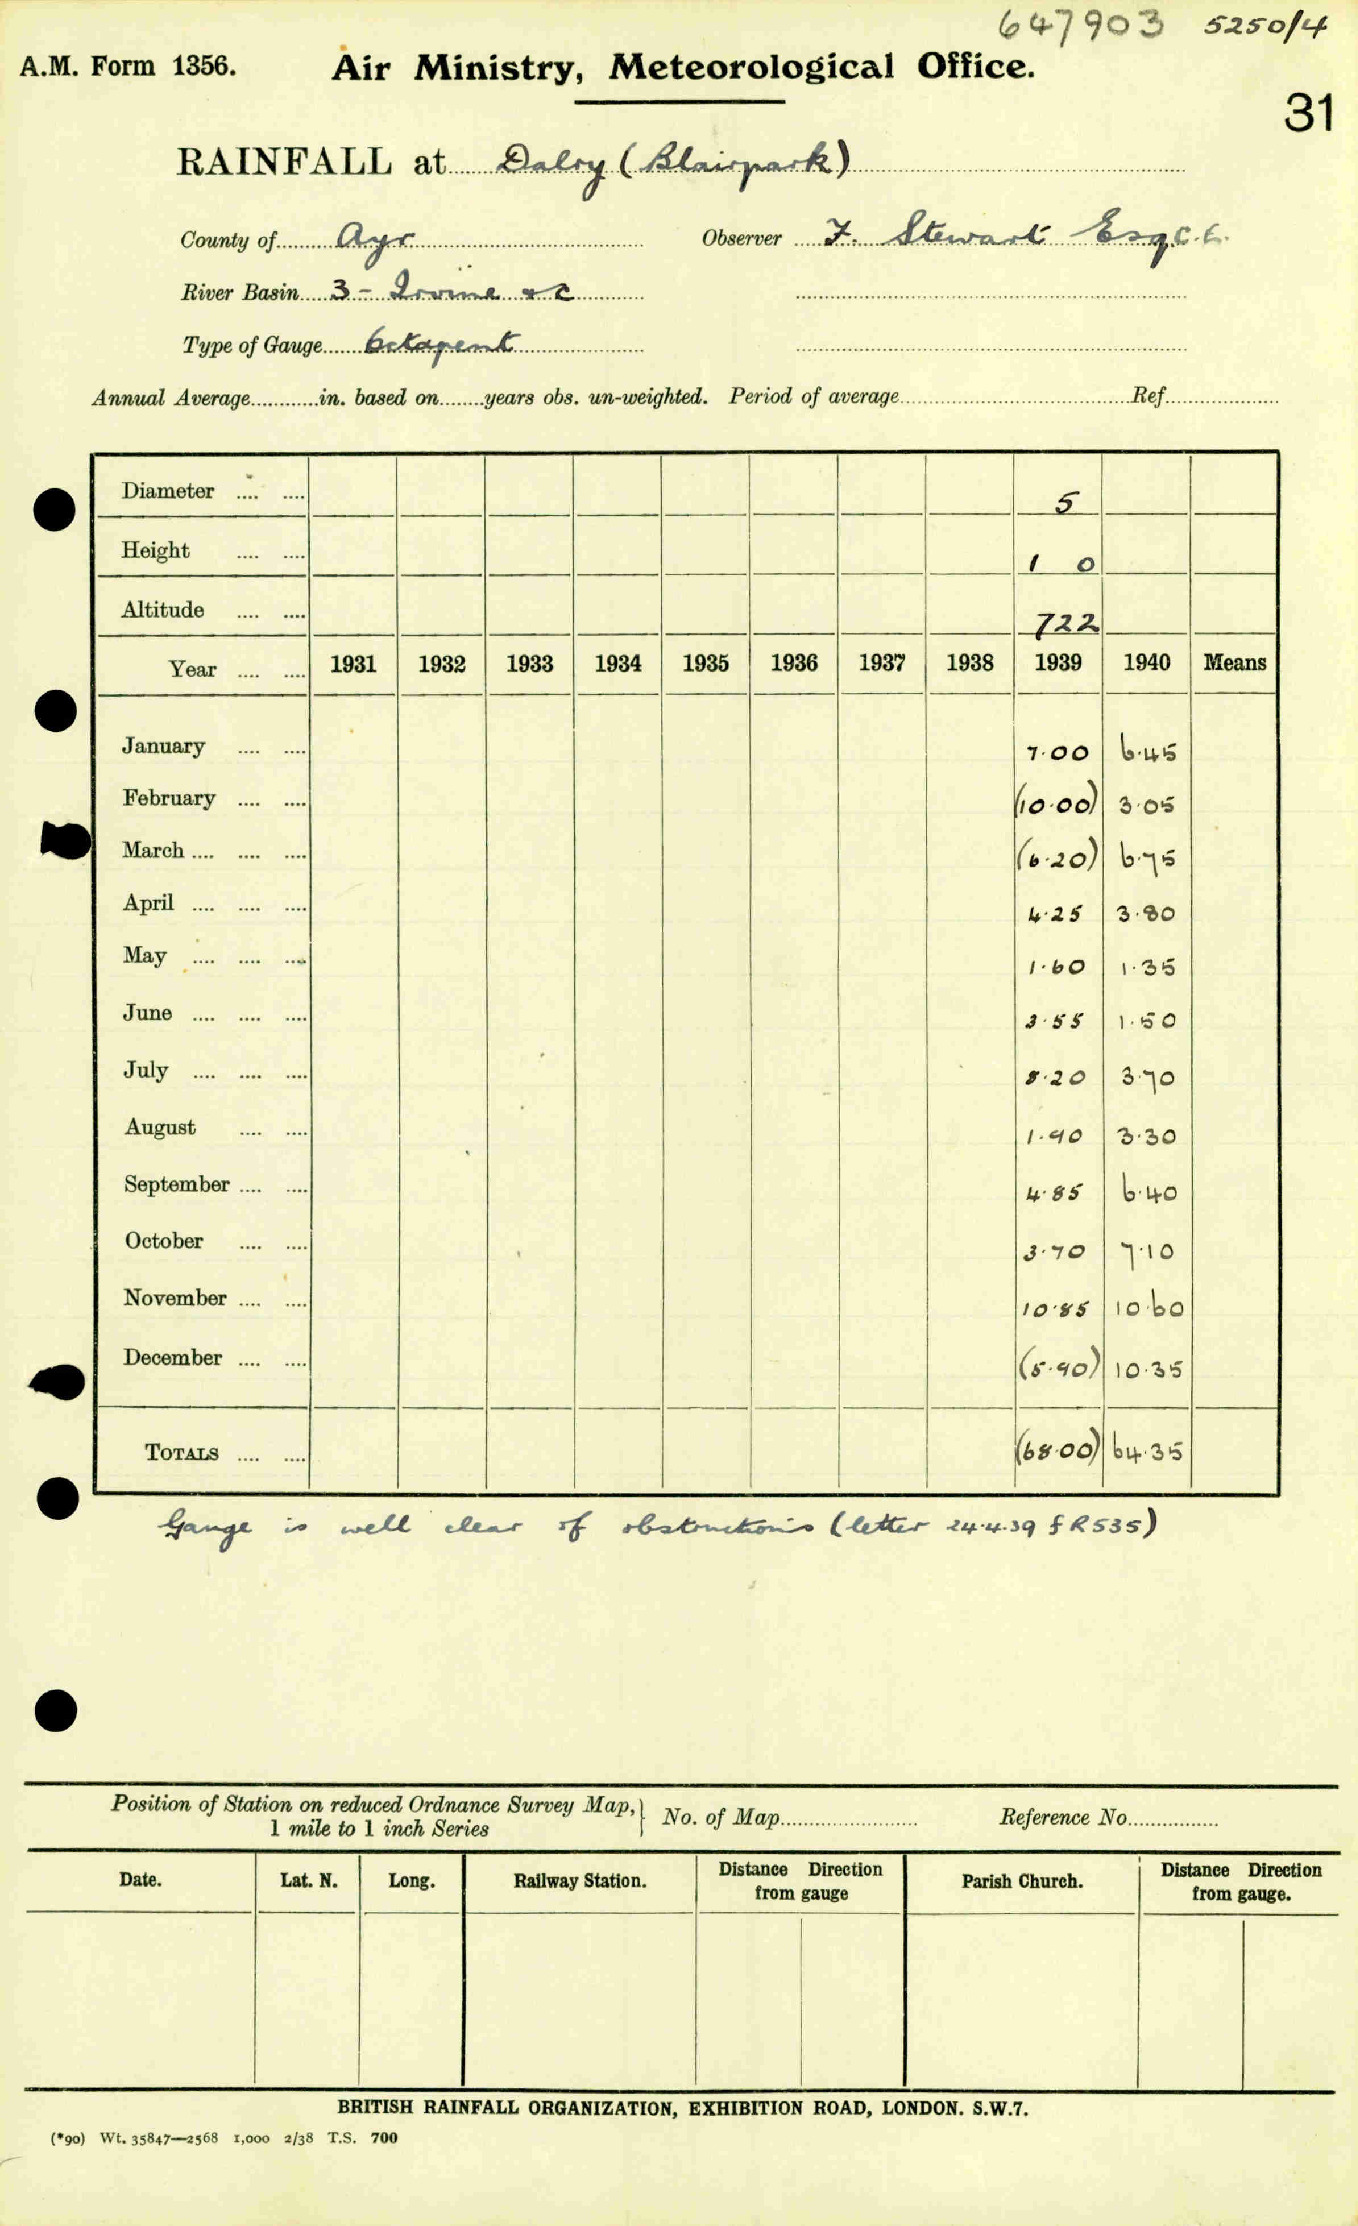 647903 5250/4
A.M. Form 1356. Air Ministry, Meteorological Office.
31
RAINFALL at Dalry (Blairpark)
County of Ayr Observer F. Stewart Esq C.E.
River Basin 3 - Irvine &c
Type of Gauge Octapent
Annual Average in. based on years obs. un-weighted. Period of average Ref.
Diameter 5
Height 1 0
Altitude 722
Year 1931 1932 1933 1934 1935 1936 1937 1938 1939 1940 Means
January 7.00 6.45
February (10.00) 3.05
March (6.20) 6.75
April 4.25 3.80
May 1.60 1.35
June 3.55 1.50
July 8.20 3.70
August 1.90 3.30
September 4.85 6.40
October 3.70 7.10
November 10.85 10.60
December (5.90) 10.35
TOTALS (68.00) 64.35
Gauge is well clear of obstructions (letter 24.4.39 f R535)
Position of Station on reduced Ordnance Survey Map, } No. of Map Reference No.
1 mile to 1 inch Series
Date. Lat. N. Long. Railway Station. Distance Direction from gauge Parish Church. Distance Direction from gauge.
BRITISH RAINFALL ORGANIZATION, EXHIBITION ROAD, LONDON. S.W.7.
(*90) Wt. 35847—2568 1,000 2/38 T.S. 700